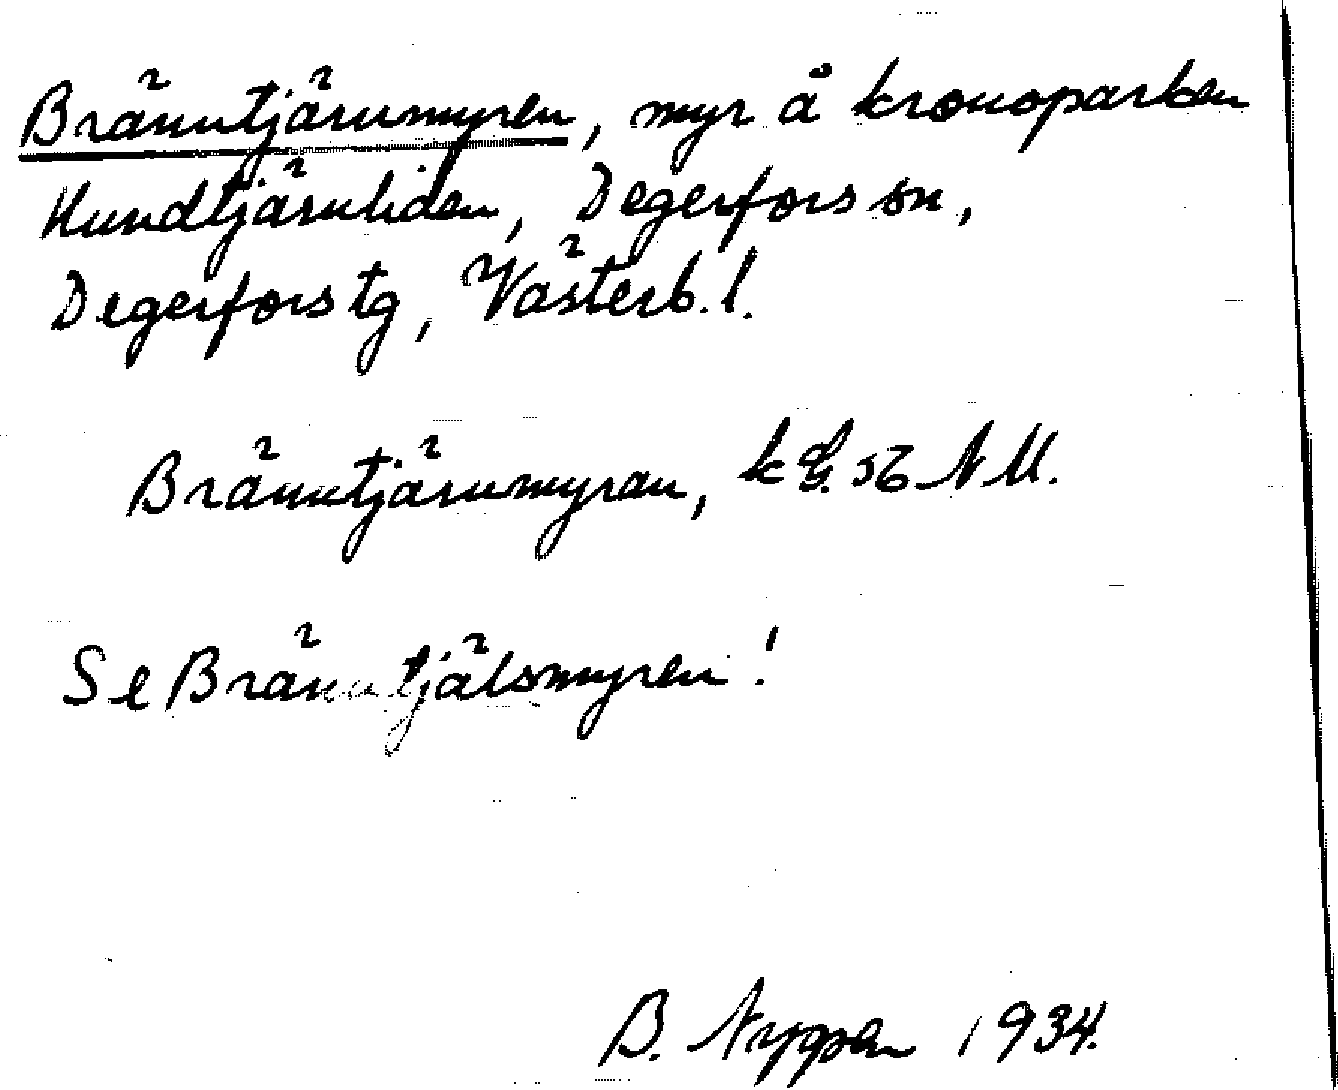 Bränntjärnmyren, myr å kronoparken
Hundtjärnliden, Degerfors sn,
Degerfors tg, Västerb. l.
Bränntjärnmyran, k
Se Bränntjälsmyren!
B. 1934.